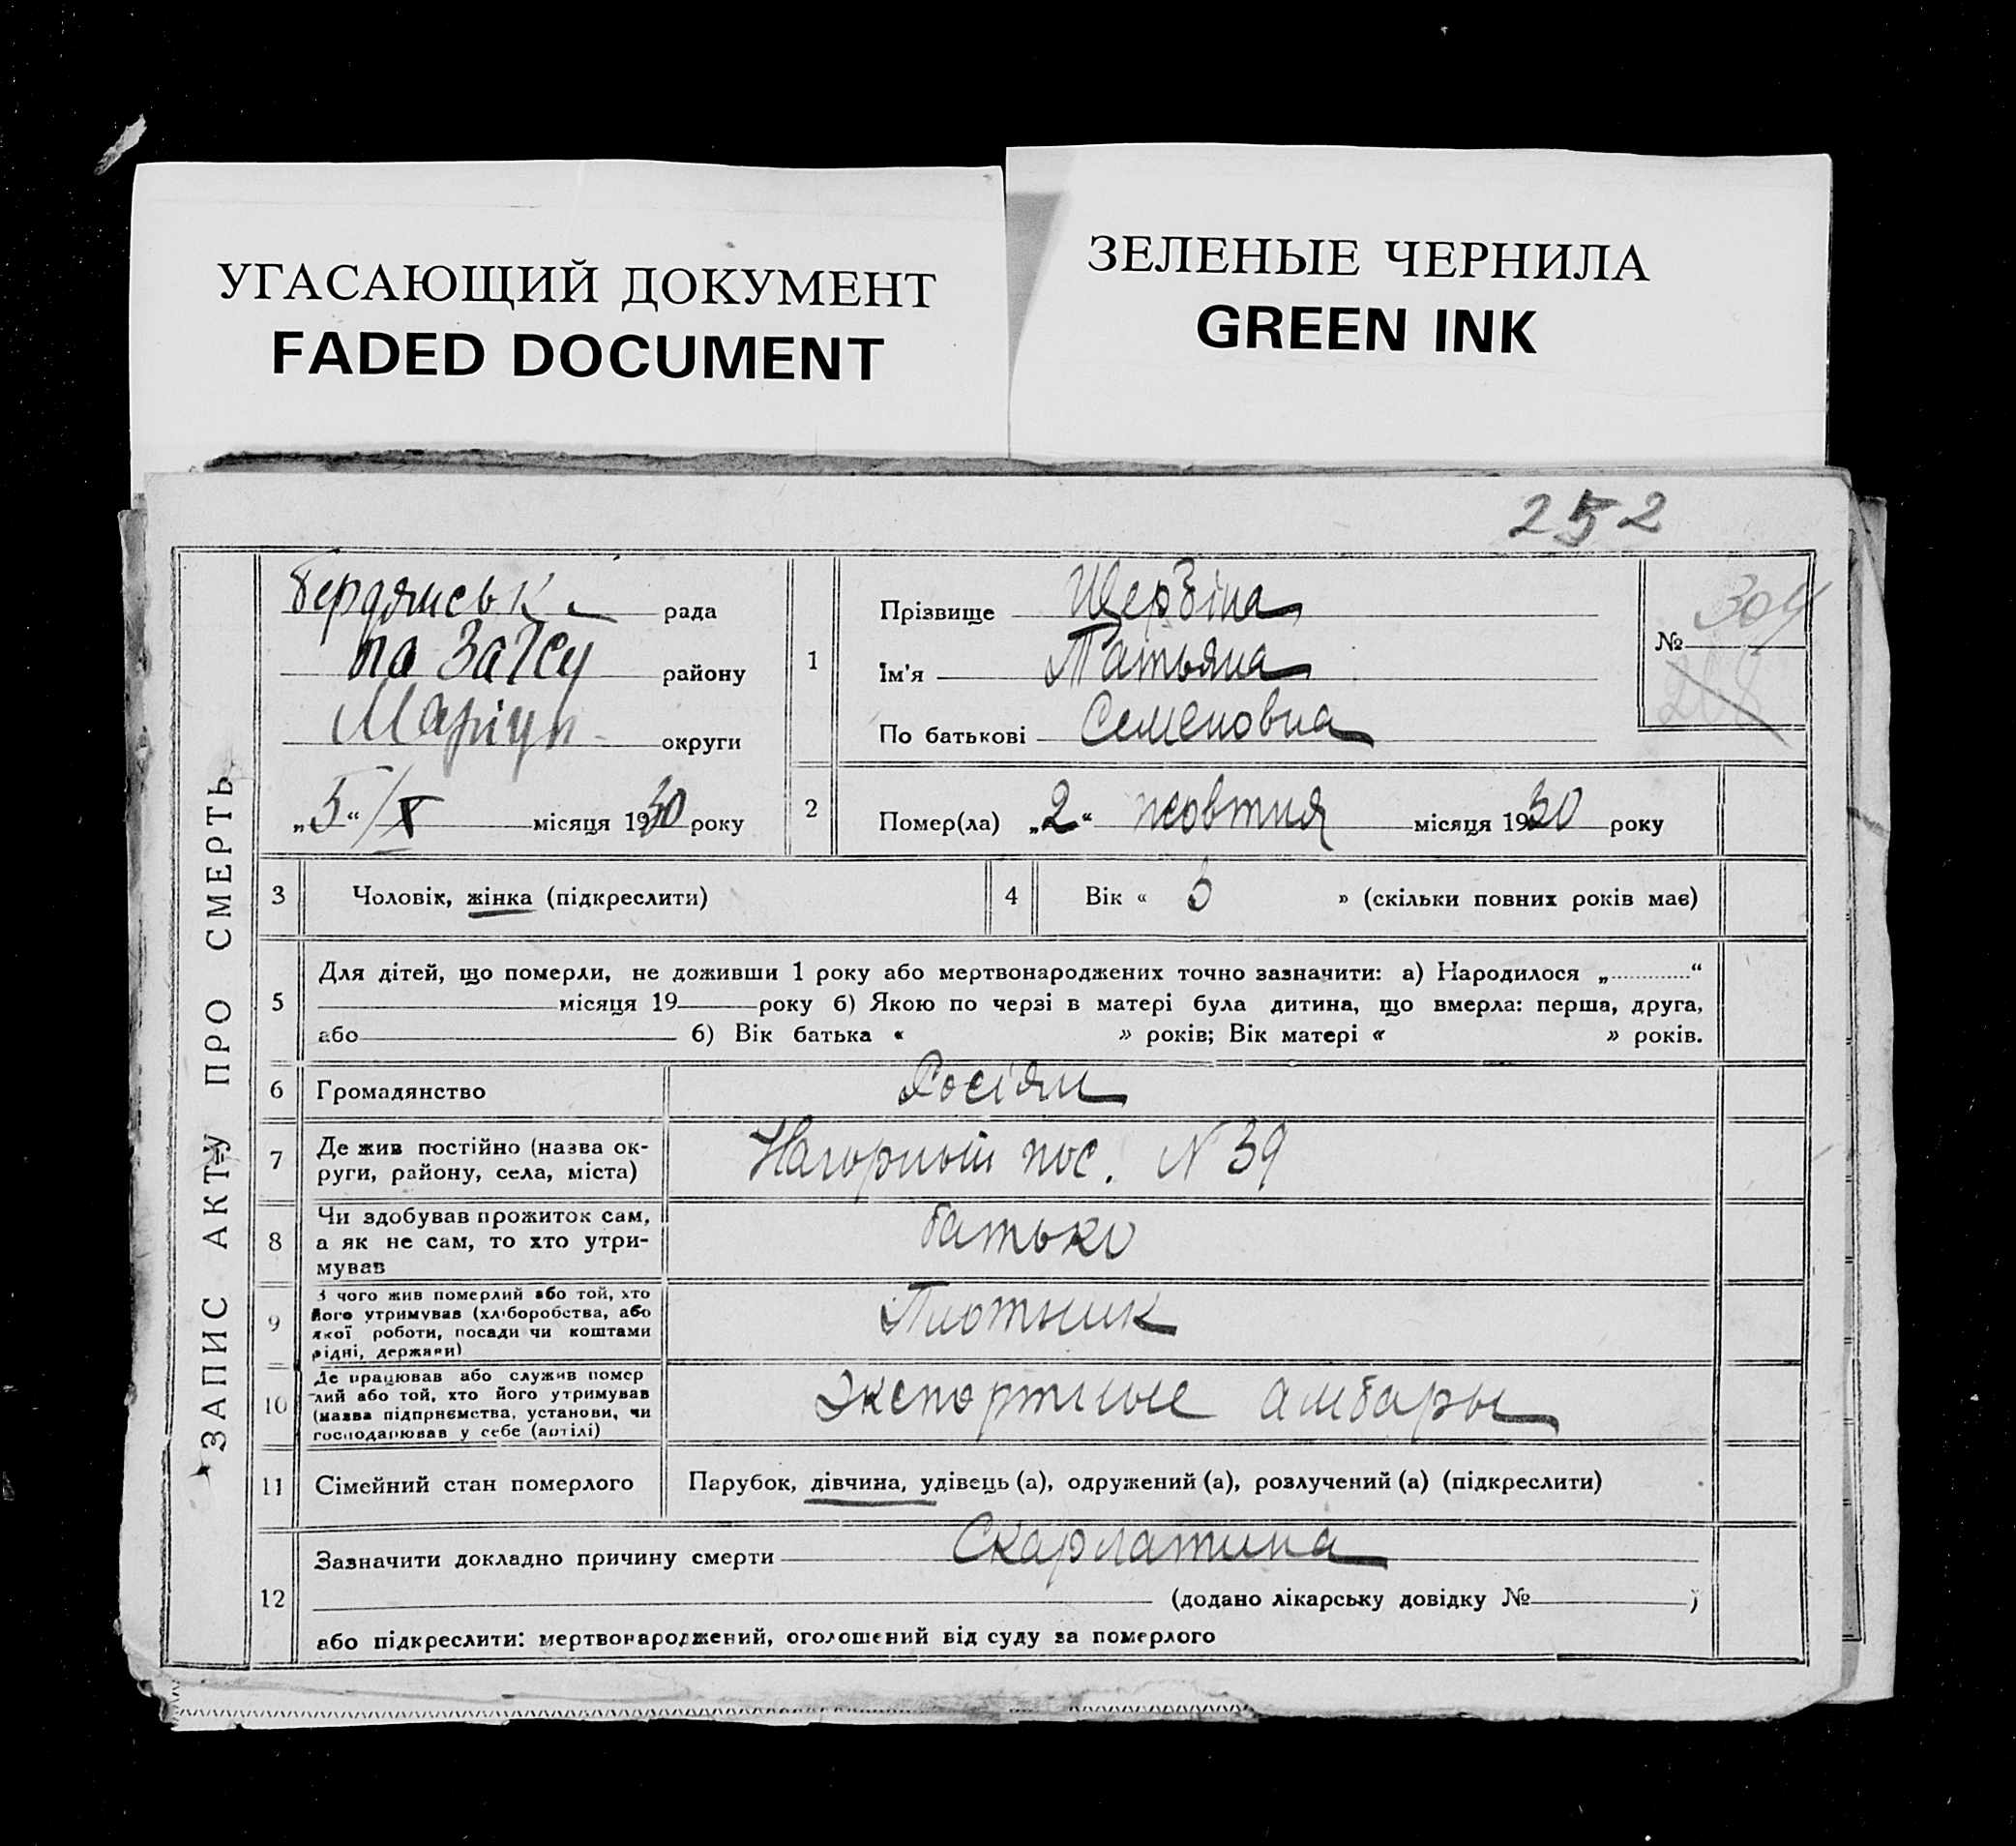 УГАСАЮЩИЙ ДОКУМЕНТ
FADED DOCUMENT
ЗЕЛЕНЫЕ ЧЕРНИЛА
GREEN INK
252
ЗАПИС АКТУ ПРО СМЕРТЬ
Бердянськ рада
по Загсу району
Маріуп округи
„5“/X місяця 1930 року
1
Прізвище Щербіна
Ім'я Татьяна
По батькові Семеновна
№ 304
268
2
Помер(ла) „2“ жовтня місяця 1930 року
3 Чоловік, жінка (підкреслити)
4 Вік « 5 » (скільки повних років має)
5
Для дітей, що померли, не доживши 1 року або мертвонароджених точно зазначити: а) Народилося „ “
місяця 19 року б) Якою по черзі в матері була дитина, що вмерла: перша, друга,
або б) Вік батька « » років; Вік матері « » років.
6 Громадянство Росіян
7
Де жив постійно (назва ок-
руги, району, села, міста)
Нагорный пос. N 39
8
Чи здобував прожиток сам,
а як не сам, то хто утри-
мував
батько
9
З чого жив померлий або той, хто
його утримував (хліборобства, або
якої роботи, посади чи коштами
рідні, держави)
Плотник
10
Де працював або служив помер
лий або той, хто його утримував
(назва підприємства, установи, чи
господарював у себе (артілі)
Экспортные амбары
11 Сімейний стан померлого Парубок, дівчина, удівець (а), одружений (а), розлучений (а) (підкреслити)
12
Зазначити докладно причину смерти Скарлатина
(додано лікарську довідку № )
або підкреслити: мертвонароджений, оголошений від суду за померлого